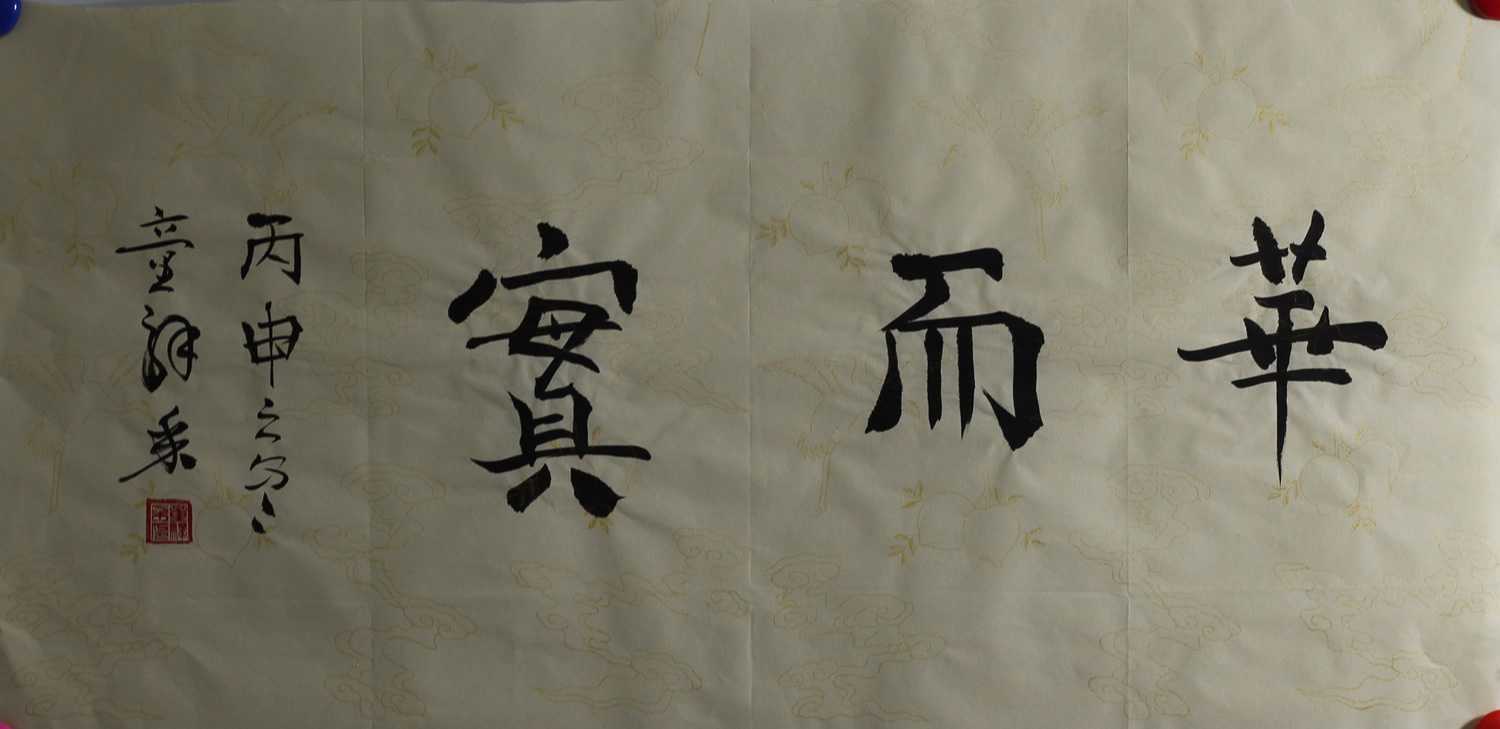 華而實
丙申之冬
童祥年